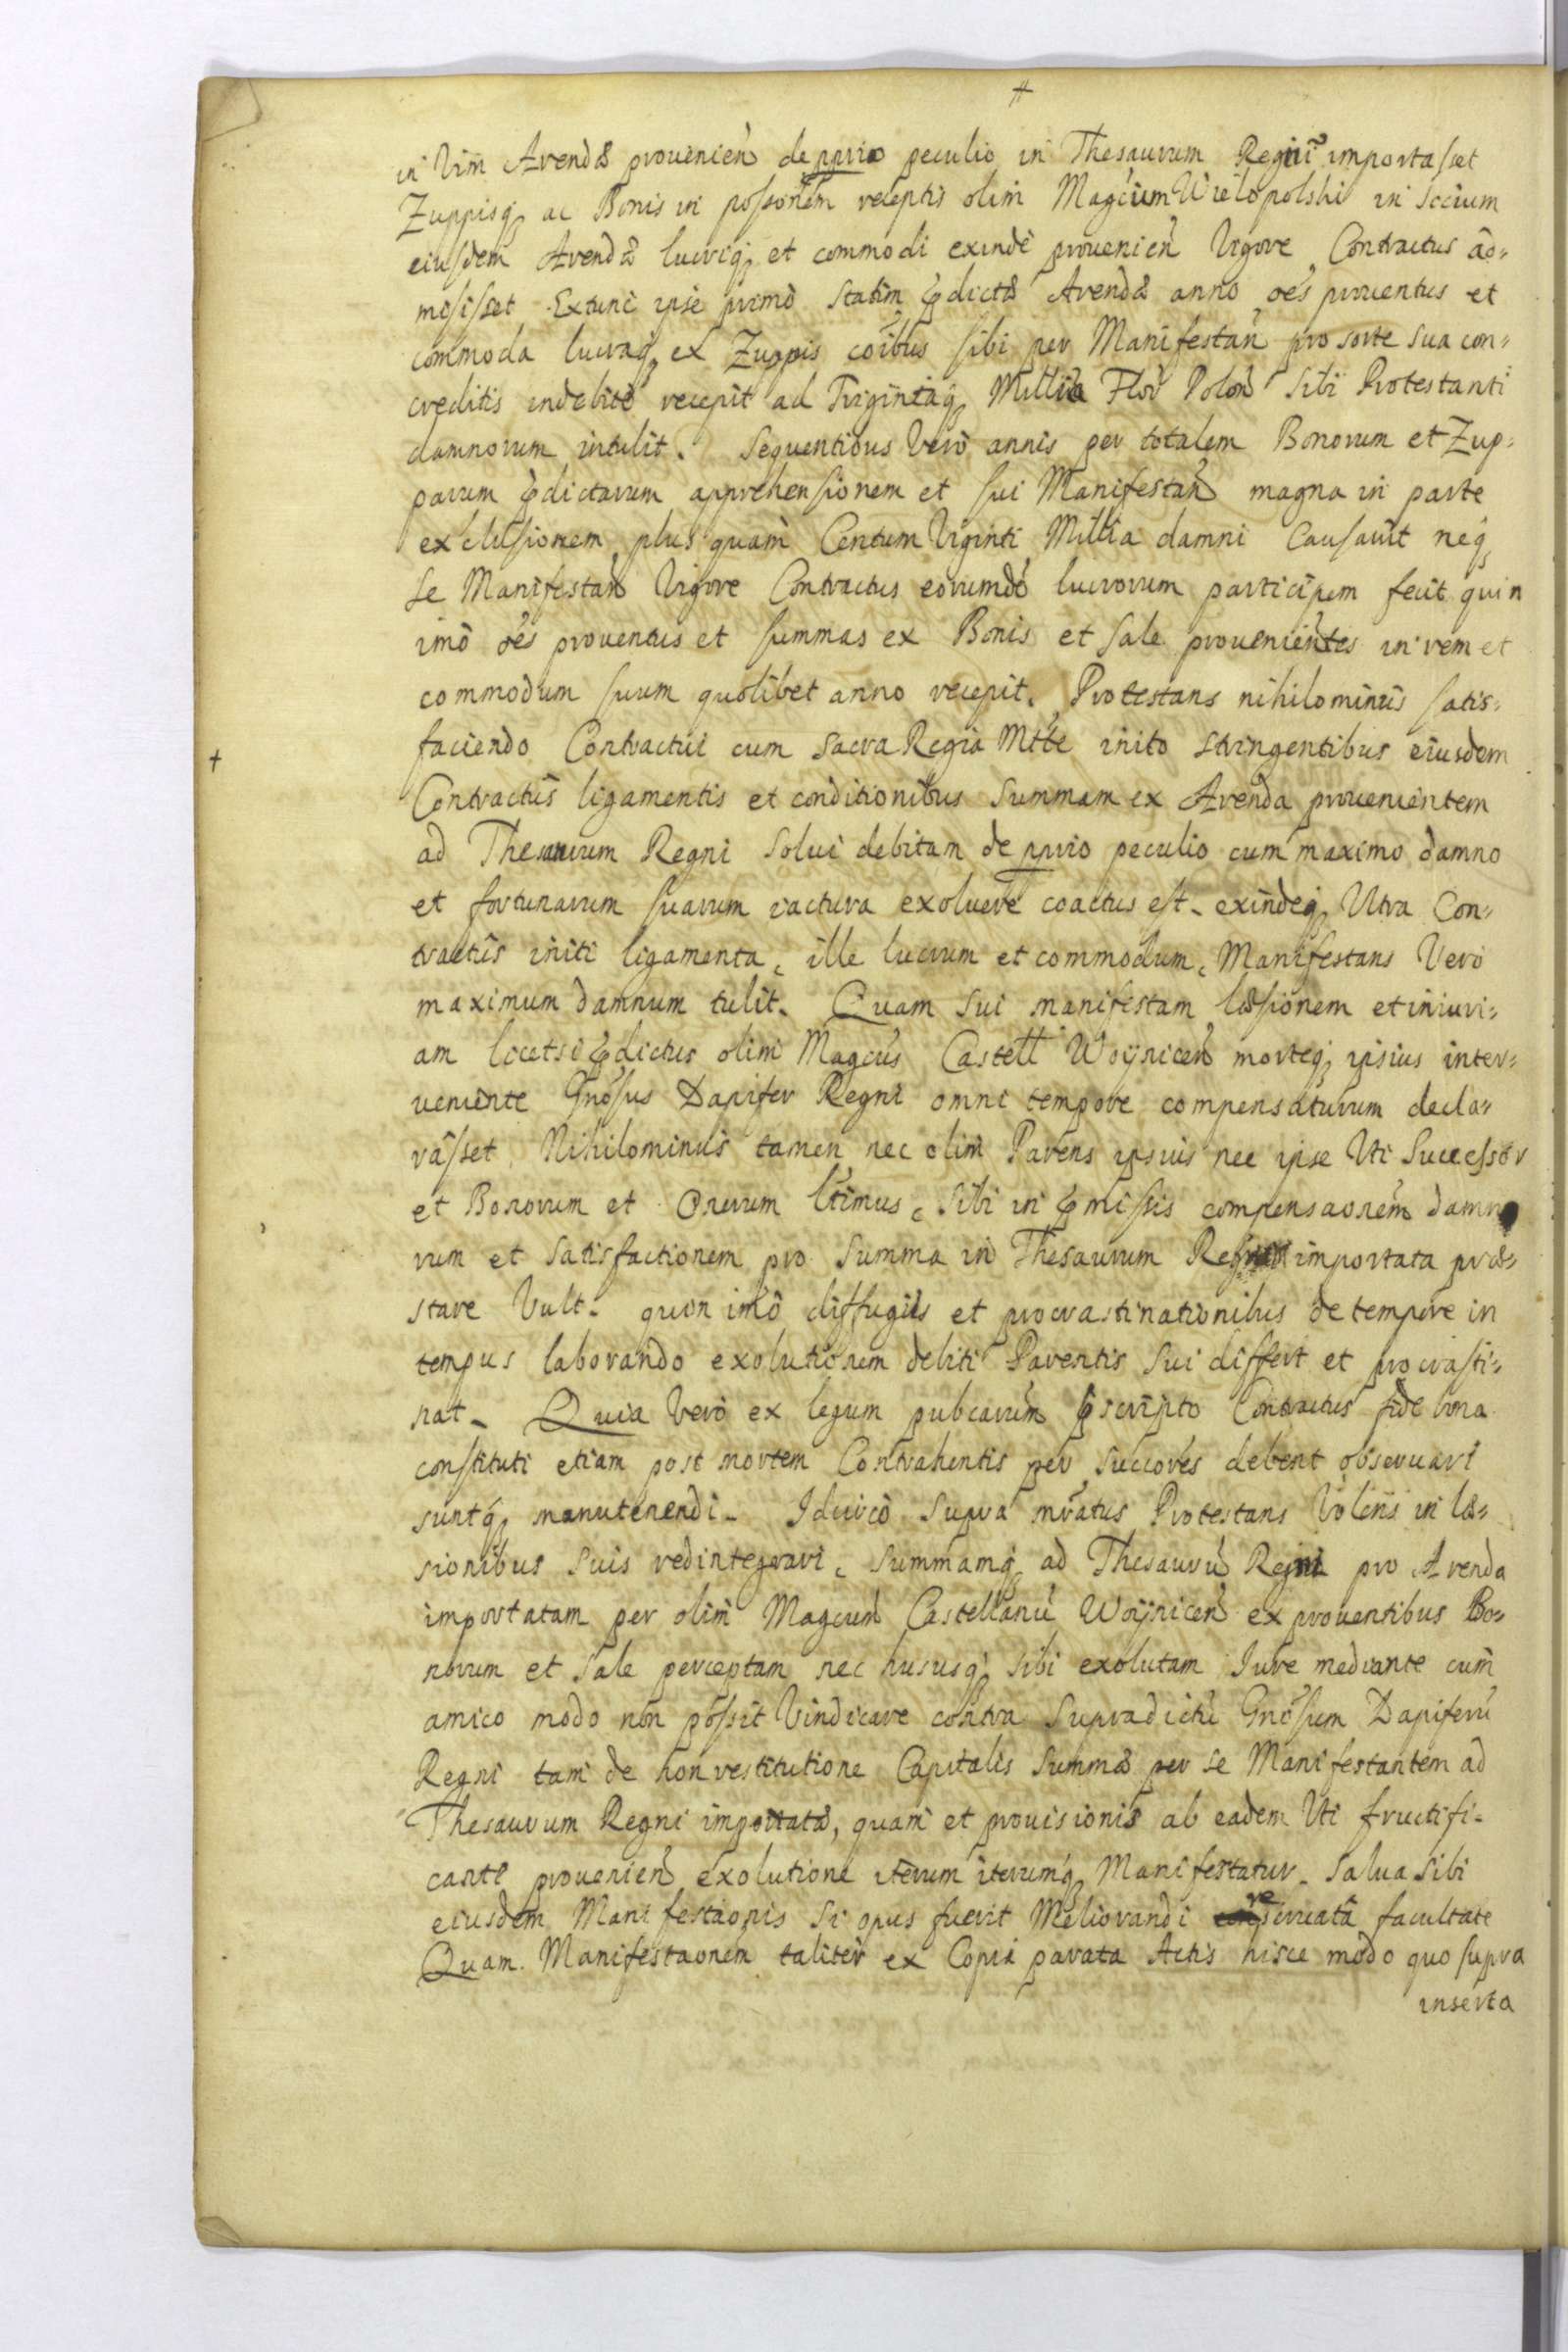 in Vim Arendæ prouenien̄ de pprio peculio in Thesaurum Regni importasset
Zuppisq ac Bonis in possonem receptis olim Magcium Wielopolski in socium
eiusdem Arendæ lucriq et commodi exinde prouenien̄ Vigore Contractus ad-
misisset Extunc ipse primo statim p̄dictæ Arendæ anno oēs prouentus et
commoda lucraq ex Zuppis coībus sibi per Manifestan̄ pro sorte sua con-
creditis indebite recepit ad Trigintaq Millia Flor Polon̄ Sibi Protestanti
damnorum intulit. Sequentibus Vero annis per totalem Bonorum et Zup-
parum p̄dictarum apprehensionem et sui Manifestan̄ magna in parte
exclusionem plus quam Centum Viginti Millia damni Causauit neq
se Manifestan̄ Vigore Contractus eorumdē lucrorum participem fecit quin
imo oēs prouentus et summas ex Bonis et Sale prouenientes in rem et
commodum suum quolibet anno recepit. Protestans nihilominus satis-
faciendo Contractui cum Sacra Regia Mtte inito stringentibus eiusdem
Contractus ligamentis et conditionibus Summam ex Arenda prouenientem
ad Thesaurum Regni Solui debitam de pprio peculio cum maximo damno
et fortunarum suarum iactura exoluere coactus est. exindeq Vltra Con-
tractus initi ligamenta, ille lucrum et commodum, Manifestans Vero
maximum damnum tulit. Quam sui manifestam læsionem et iniuri-
am licet si p̄dictus olim Magcus Castell Woynicen̄ morteq ipsius inter-
ueniente Gnōsus Dapifer Regni omni tempore compensaturum decla-
râsset Nihilominus tamen nec olim Parens ipsius nec ipse Vti Successor
et Bonorum et Onerum ltimus, Sibi in p̄missis compensaonem damno
rum et Satisfactionem pro Summa in Thesaurum Regni importata præ-
stare Vult. quin imo diffugiis et procrastinationibus de tempore in
tempus laborando exolutionem debiti Parentis sui differt et procrasti-
nat. Quia Vero ex legum pubcarum p̄scripto Contractus fide bona
constituti etiam post mortem Contrahentis per succores debent obseruari
suntq manutenendi. Idcirco supra mratus Protestans Volens in læ-
sionibus suis redintegrari, Summamq ad Thesaurū Regni pro Arenda
importatam per olim Magcum Castellanū Woynicen̄ ex prouentibus Bo-
norum et Sale perceptam nec hususq sibi exolutam Iure mediante cum
amico modo non possit Vindicare contra Supradictū Gnōsum Dapiferū
Regni tam de non restitutione Capitalis Summæ per se Manifestantem ad
Thesaurum Regni importatæ, quam et prouisionis ab eadem Vti fructifi-
cante prouenien̄ exolutione iterum iterumq Manifestatur. Salua Sibi
eiusdem Manifestaonis si opus fuerit Meliorandi reseruata facultate
Quam Manifestaonem taliter ex Copia parata Actis hisce modo quo supra
inserta